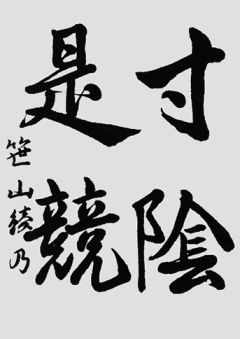 寸陰
是競
笹山綾乃